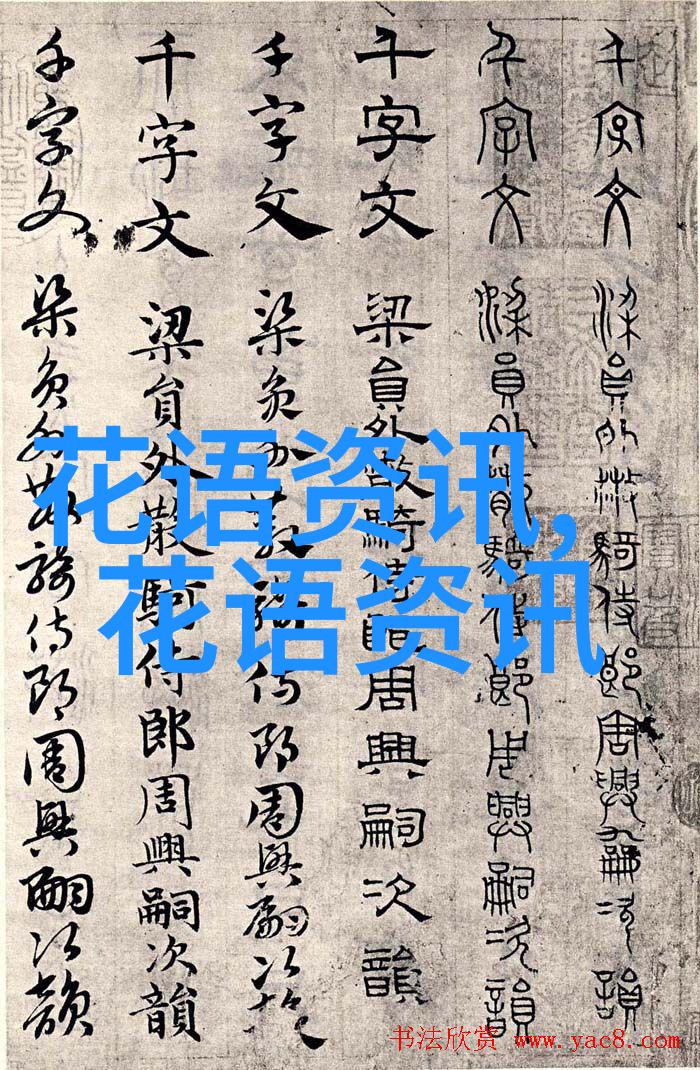 千字文 梁員外散騎侍郎周興嗣次韻
千字文 梁員外散騎侍郎周興嗣次韻
千字文 梁員外散騎侍郎周興嗣次韻
千字文 梁員外散騎侍郎周興嗣次韻
千字文 梁員外散騎侍郎周興嗣次韻
千字文 梁員外散騎侍郎周興嗣次韻
花语资讯,
花语资讯
书法欣赏 www.yac8.com